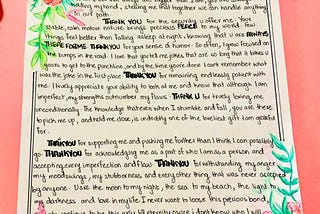 holding my hand, knowing that together we can handle anything
in our path.
THANK YOU for the security u offer me. Your
stable, calm mature nature brings precious PEACE to my world. Few
things feel better than falling asleep at night, knowing that u are ALWAYS
THERE FOR ME. THANK YOU for your sense of humor. So often, I get so focused on
the bumps in the road. I love that you tell jokes, that are so long that it takes u
years to get to the punchline, and by the time you're done I can't remember what
was the joke in the first place. THANK YOU for remaining endlessly patient with
me. I rarely appreciate your ability to look at me and know that although I am
imperfect, my strengths outnumber my flaws. THANK U for loving me
unconditionally. The knowledge that even when I stumble and fall, you are there
to pick me up, and hold me close, is undoubtly one of the loveliest gift I am grateful
for.
THANK YOU for supporting me and pushing me further than I think I can possibly
go. THANK YOU for acknowledging me as a part of who I am as a person and
accepting every imperfection and flaw. THANK YOU for withstanding my anger,
my moodswings, my stubborness and every other thing that was never accepted
by anyone. U are the moon to my night, the sea to my beach, the light to
my darkness and love in my life. I never want to loose this precious bond,